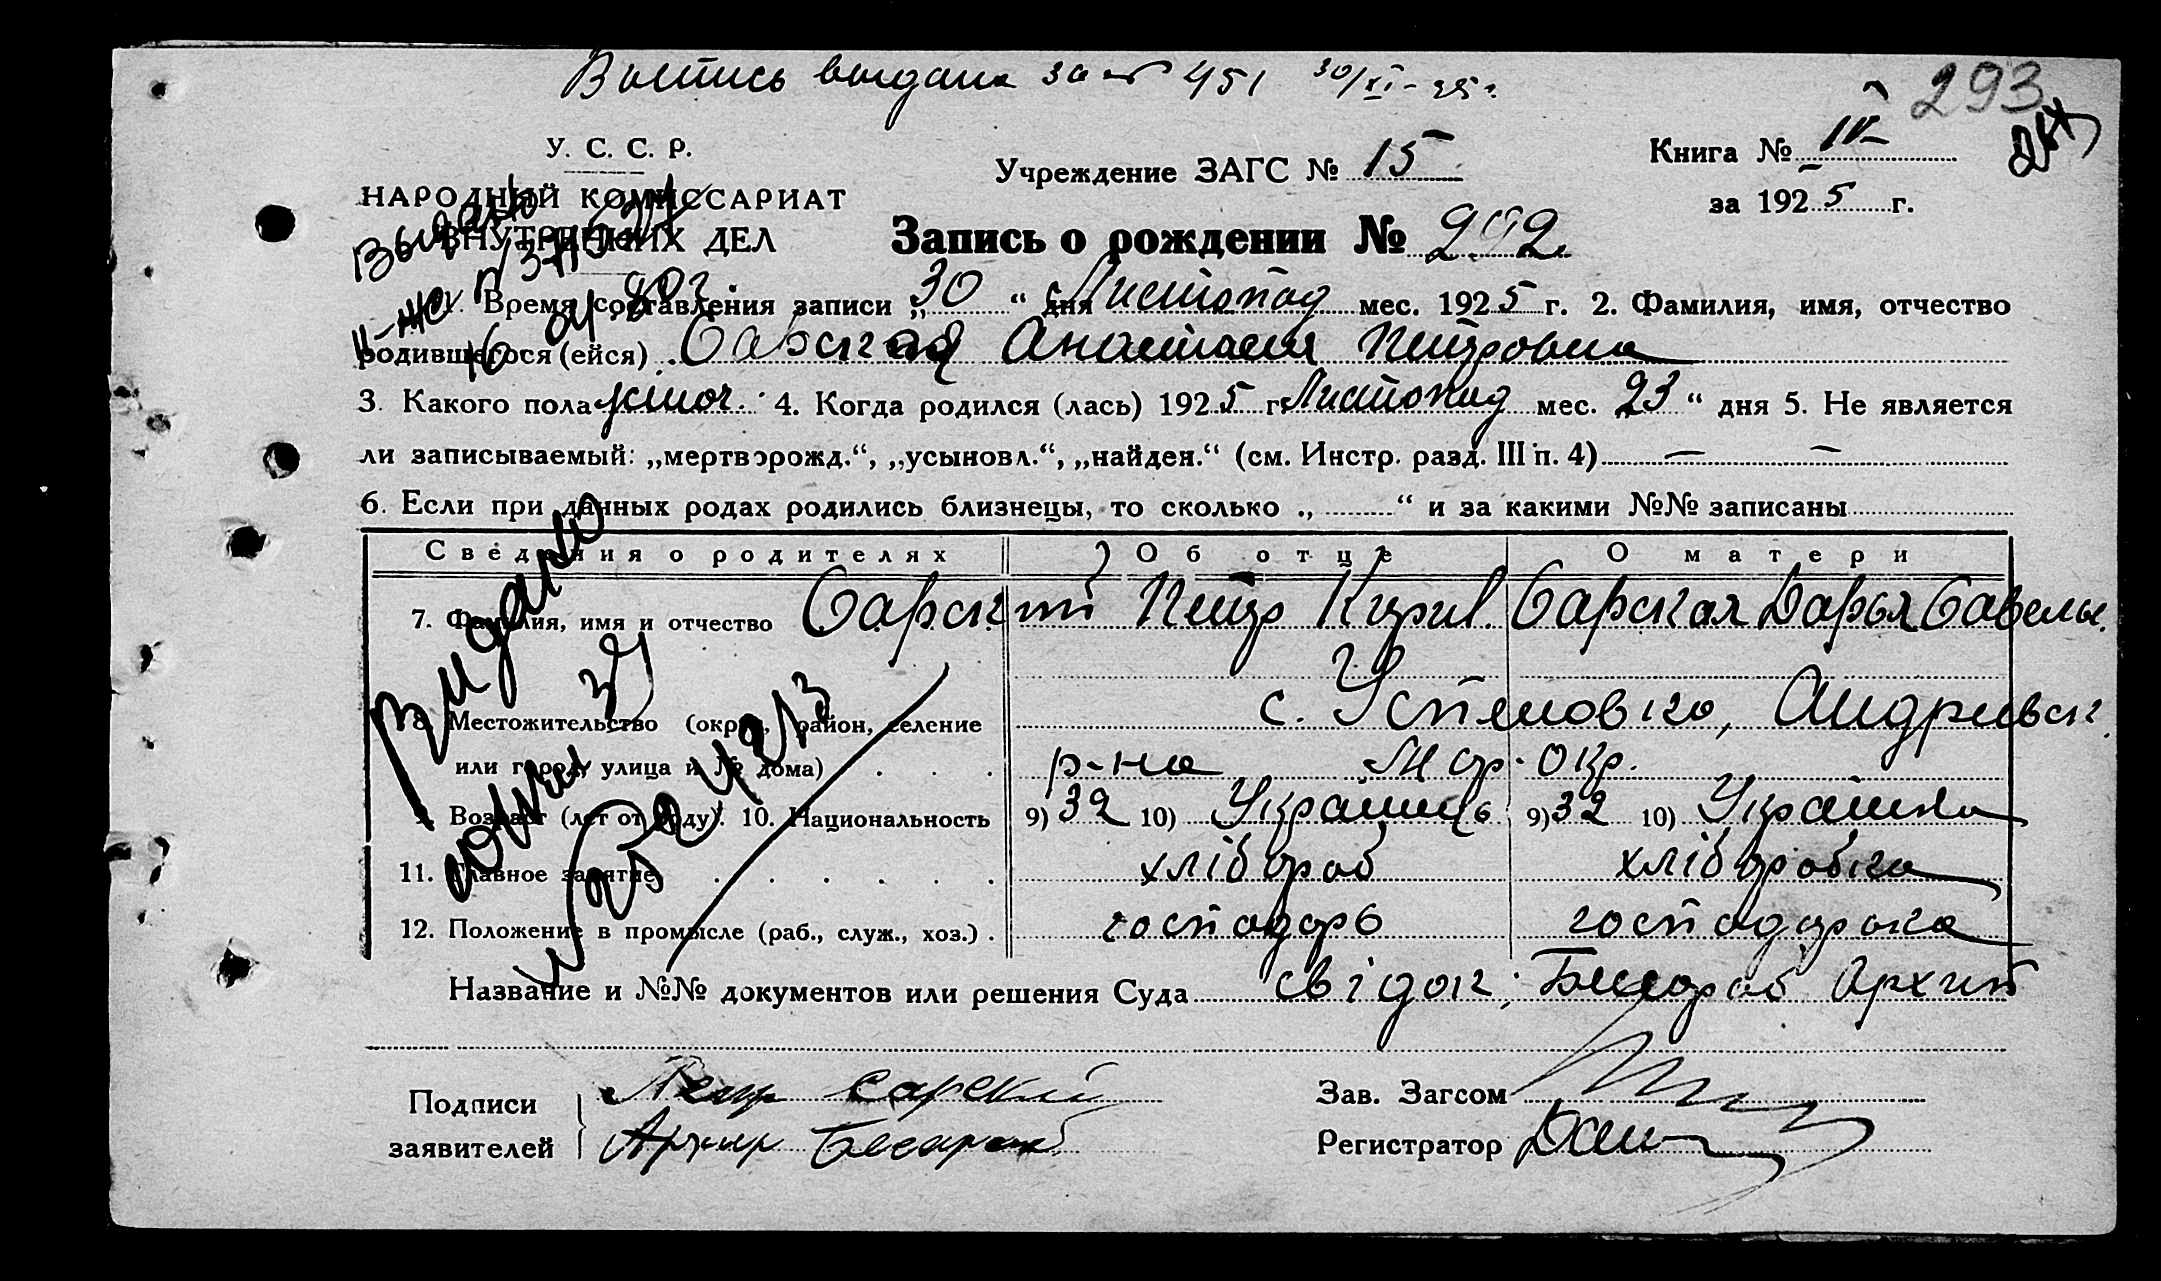 Выпись выдана за № 451 30/XI-25 г.
293
У. С. С. Р.
НАРОДНЫЙ КОМИССАРИАТ
ВНУТРЕННИХ ДЕЛ
Учреждение ЗАГС № 15
Книга № IV
за 1925 г.
Запись о рождении № 292
1. Время составления записи „30“ дня Листопад мес. 1925 г. 2. Фамилия, имя, отчество
родившегося (ейся) Анастасия Петровна
3. Какого пола жіноч. 4. Когда родился (лась) 1925 г. Листопад мес. 23 “ дня 5. Не является
ли записываемый: „мертворожд.“, „усыновл.“, „найден.“ (см. Инстр. разд. III п. 4) — —
6. Если при данных родах родились близнецы, то сколько „ “ и за какими №№ записаны
Сведения о родителях Об отце О матери
7. Фамилия, имя и отчество Сарский Петр Кирил. Сарская Дарья Савельн.
8. Местожительство (округ, район, селение с. Успеновка, Андриевск.
или город, улица и № дома) р-на Мар. окр.
9. Возраст (лет от роду). 10. Национальность 9) 32 10) Украинець 9) 32 10) Украинка
11. Главное занятие хлібороб хлібопробка
12. Положение в промысле (раб., служ., хоз.) господарь господарька
Название и №№ документов или решения Суда свідок: Архип
Подписи
заявителей
Петр Сарский
Зав. Загсом
Регистратор
Видано